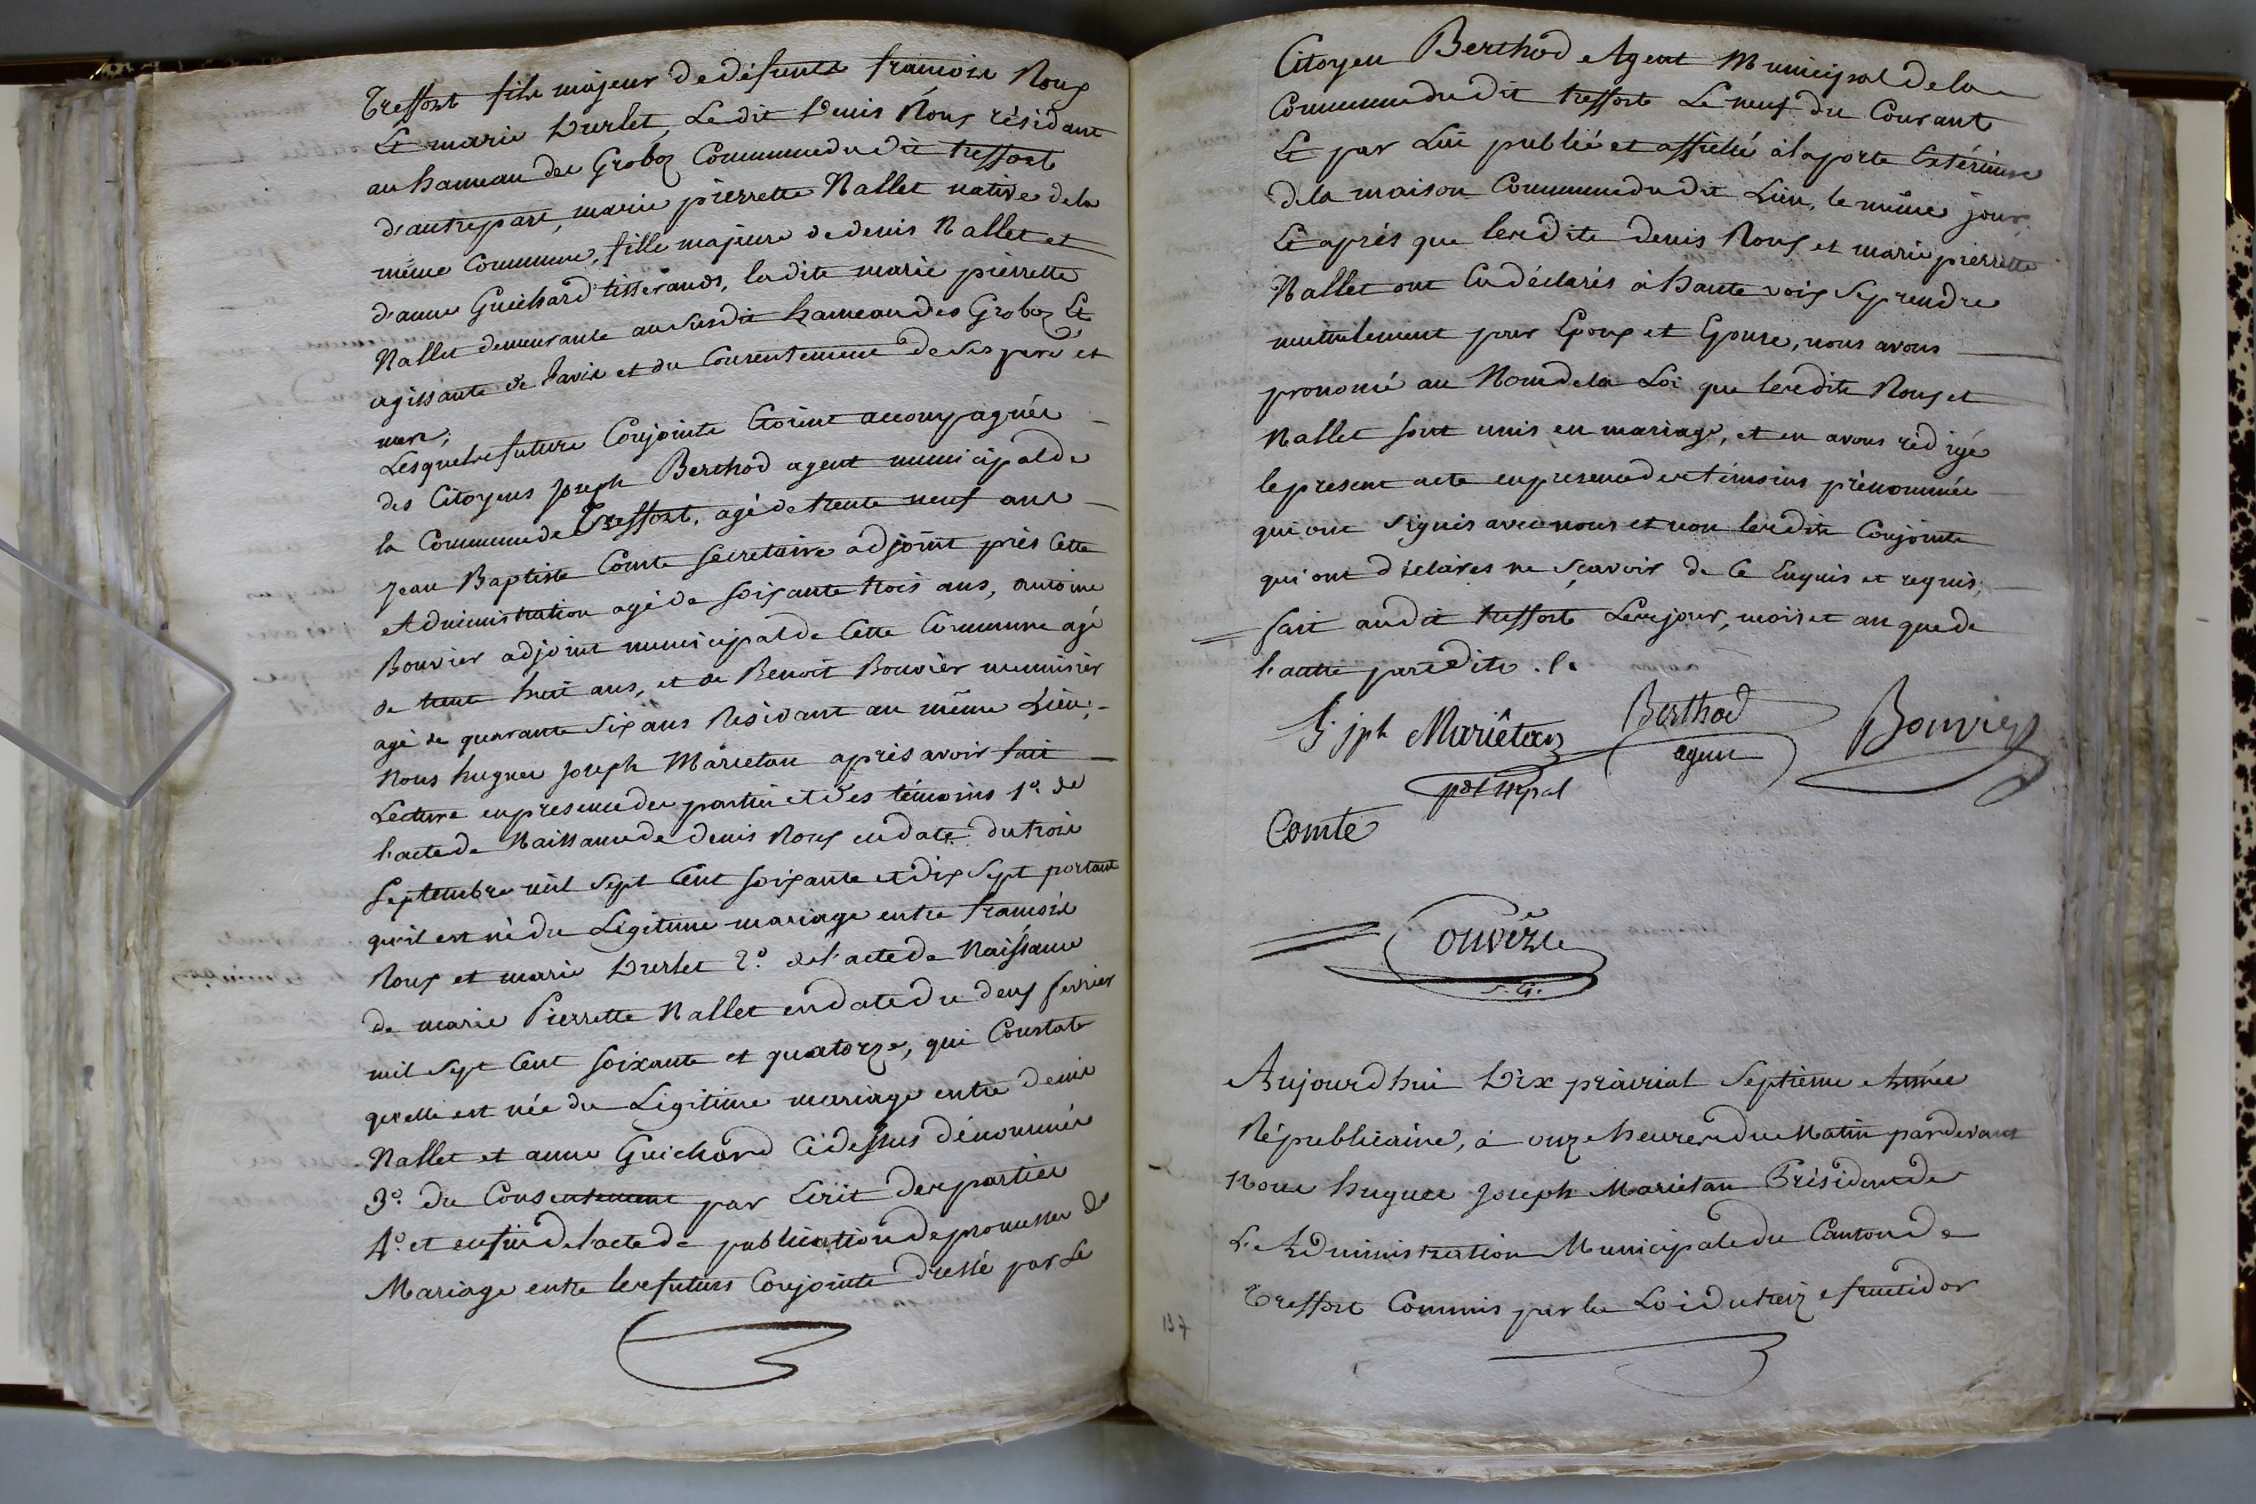 Treffort fils majeur de défunts francois Roux
Et marie Durlet, Le dit Denis Roux résidant
au hameau des Groboz Commune du dit treffort
d'autre part, marie pierrette Nallet native de la
même Commune, fille majeure de denis Nallet et
d'anne Guichard tisserands, la dite marie pierrette
Nallet demeurante au susdit hameau des Groboz Et
agissante de l'avis et du Consentement de ses pere et
mere;
Lesquels futurs Conjoints Etoient accompagnés
des Citoyens Joseph Berthod agent municipal de
la Commune de Treffort, agé de trente neuf ans
Jean Baptiste Comte secretaire adjoint près Cette
Administration agé de soixante trois ans, antoine
Bouvier adjoint municipal de Cette Commune agé
de trent huit ans, et de Benoit Bouvier menuisier
agé de quarante six ans Résidant au même Lieu;
Nous hugues Joseph Marietan après avoir fait
Lecture en presence des parties et des témoins 1º de
l'acte de Naissance de denis Roux en date du trois
Septembre mil sept Cent soixante et dix sept portant
qu'il est né du Légitime mariage entre francois
Roux et marie Durlet 2º de l'acte de Naissance
de marie Pierrette Nallet en date du deux fevrier
mil sept Cent soixante et quatorze, qui Constate
qu'elle est née du Légitime mariage entre denis
Nallet et anne Guichard Ci dessus dénommés
3º du Consentement par Ecrit des parties
4º et enfin de l'acte de publication de promesses de
Mariage entre les futurs Conjoints dressé par Le
Citoyen Berthod Agent Municipal de la
Commune du dit treffort Le neuf du Courant
Et par Lui publié et affiché à la porte Extérieure
de la maison Commune du dit Lieu, le même jour,
Et après que lesdits denis Roux et marie pierrette
Nallet ont Eu déclarés à haute voix se prendre
mutuelement pour Epoux et Epouse, nous avons
prononcé au Nom de la Loi que lesdits Roux et
Nallet sont unis en mariage, et en avons rédigé
le present acte en presence des témoins prénommés
qui ont signés avec nous et non lesdits Conjoints
qui ont déclarés ne sçavoir de Ce Enquis et requis,
fait audit treffort Les jour, mois et an que de
l'autre part dits. /.
h. jph Mariétan
Berthod
agent
Bouvier
pdt mpal
Comte
ouvéze
s. G.
Aujourdhui Dix prairial Septième Année
Républicaine, à onze heures du Matin pardevant
Nous hugues Joseph Marietan Président de
L'Administration Municipale du Canton de
Treffort Commis par la Loi du treize fructidor
137